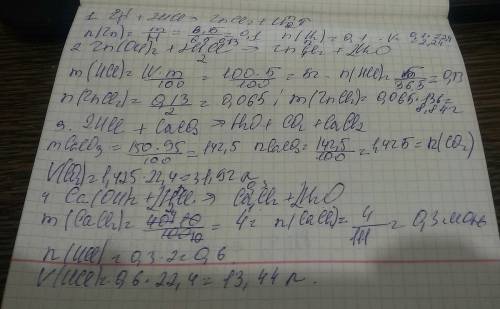 1. Zn + 2HCl → ZnCl2 + H2↑
n(Zn) = m = 6.5 = 0,1 n(H2) = 0,1 · V = 0,1·22,4 2,24
2 Zn(OH)2 + 2HCl → ZnCl2 + H2O
m(HCl) = W·m/100 = 100·5/100 = 5г · n(HCl) = 5/36,5 = 0,13
n(ZnCl2) = 0,13/2 = 0,065; m(ZnCl2) = 0,065·136 = 8,84г
3. 2HCl + CaCO3 → H2O + CO2 + CaCl2
mCaCO3 = 150·95/100 = 142,5 nCaCO3 = 142,5/100 = 1,425 = n(CO2)
V(CO2) = 1,425·22,4 = 31,92 л
4 Ca(OH)2 + HCl → CaCl2 + H2O
m(CaCl2) = = 4 = n(CaCl2) = 4/111 = 0,3 моль
n(HCl) = 0,3·2 = 0,6
V(HCl) = 0,6·22,4 = 13,44 л.